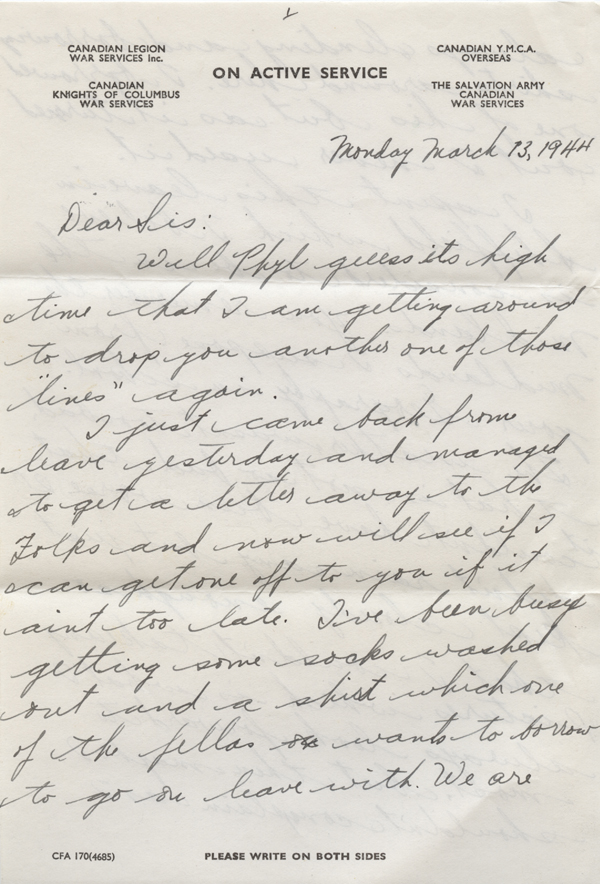 CANADIAN LEGION
WAR SERVICES Inc.
CANADIAN
KNIGHTS OF COLUMBUS
WAR SERVICES
ON ACTIVE SERVICE
CANADIAN Y.M.C.A.
OVERSEAS
THE SALVATION ARMY
CANADIAN
WAR SERVICES
Monday March 13, 1944
Dear Sis:
Well Phyl guess its high
time that I am getting around
to drop you another one of those
"lines" again.
I just came back from
leave yesterday and managed
to get a letter away to the
Folks and now will see if I
can get one off to you if it
aint too late. I've been busy
getting some socks washed
out and a shirt which one
of the fellas wants to borrow
to go on leave with. We are
CFA 170(4685)
PLEASE WRITE ON BOTH SIDES